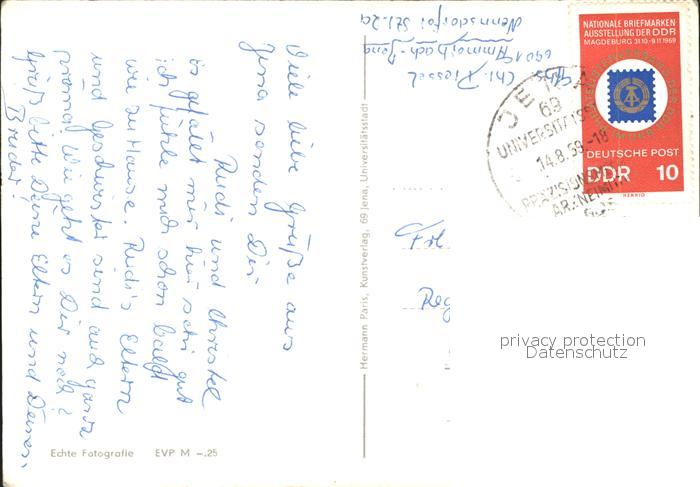 Viele liebe Grüße aus
Jena senden Dir
Rudi und Christel
es gefällt mir hier sehr gut
ich fühle mich schon bald
wie zu Hause. Rudis Eltern
und Geschwister sind auch ganz
prima! Wie geht es Dir noch?
Grüß bitte Deine Eltern und Deinen
Bruder!
Echte Fotografie EVP M –.25
Hermann Paris, Kunstverlag, 69 Jena, Universitätsstadt
Abs. Chr.
6901 Ammerbach-Jena
Nennsdorfer Str. 2a
NATIONALE BRIEFMARKEN
AUSSTELLUNG DER DDR
MAGDEBURG 31.10.-9.11.1969
DEUTSCHE POST
DDR 10
JENA
69
UNIVERSITÄTSS
14.8.69-18
PRÄZISION
ARZNEIMI
Frl
Reg
privacy protection
Datenschutz